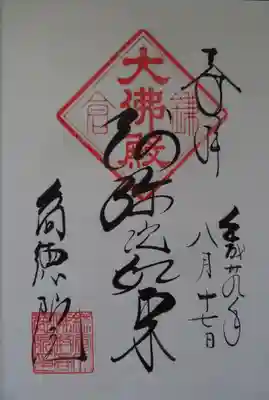 奉拝
平成廿九年
八月十七日
鎌
大佛殿
倉
阿弥陀如来
高徳院